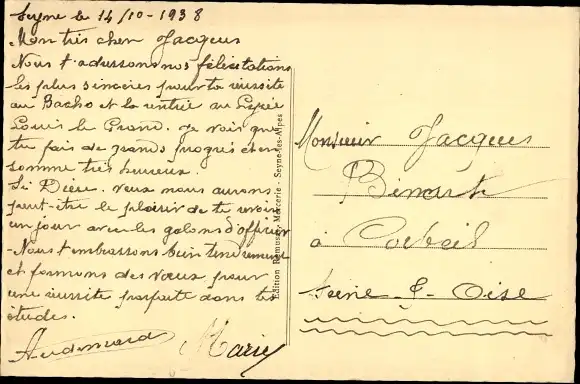 Seyne le 14/10-1938
Mon très cher Jacques
Nous t'adressons nos félicitations
les plus sincères pour ta réussite
au Bacho et ta rentrée au Lycée
Louis le Grand. Je vois que
tu fais de grands progrès et en
somme très heureux.
Si Dieu veux nous aurons
peut-être le plaisir de te voir
un jour avec les galons d'officier
- Nous t'embrassons bien tendrement
et formons des vœux pour
une réussite parfaite dans tes
études.
Marie
Edition Remusat-Mercerie - Seyne-les-Alpes
Monsieur Jacques
à Corbeil
Seine & Oise